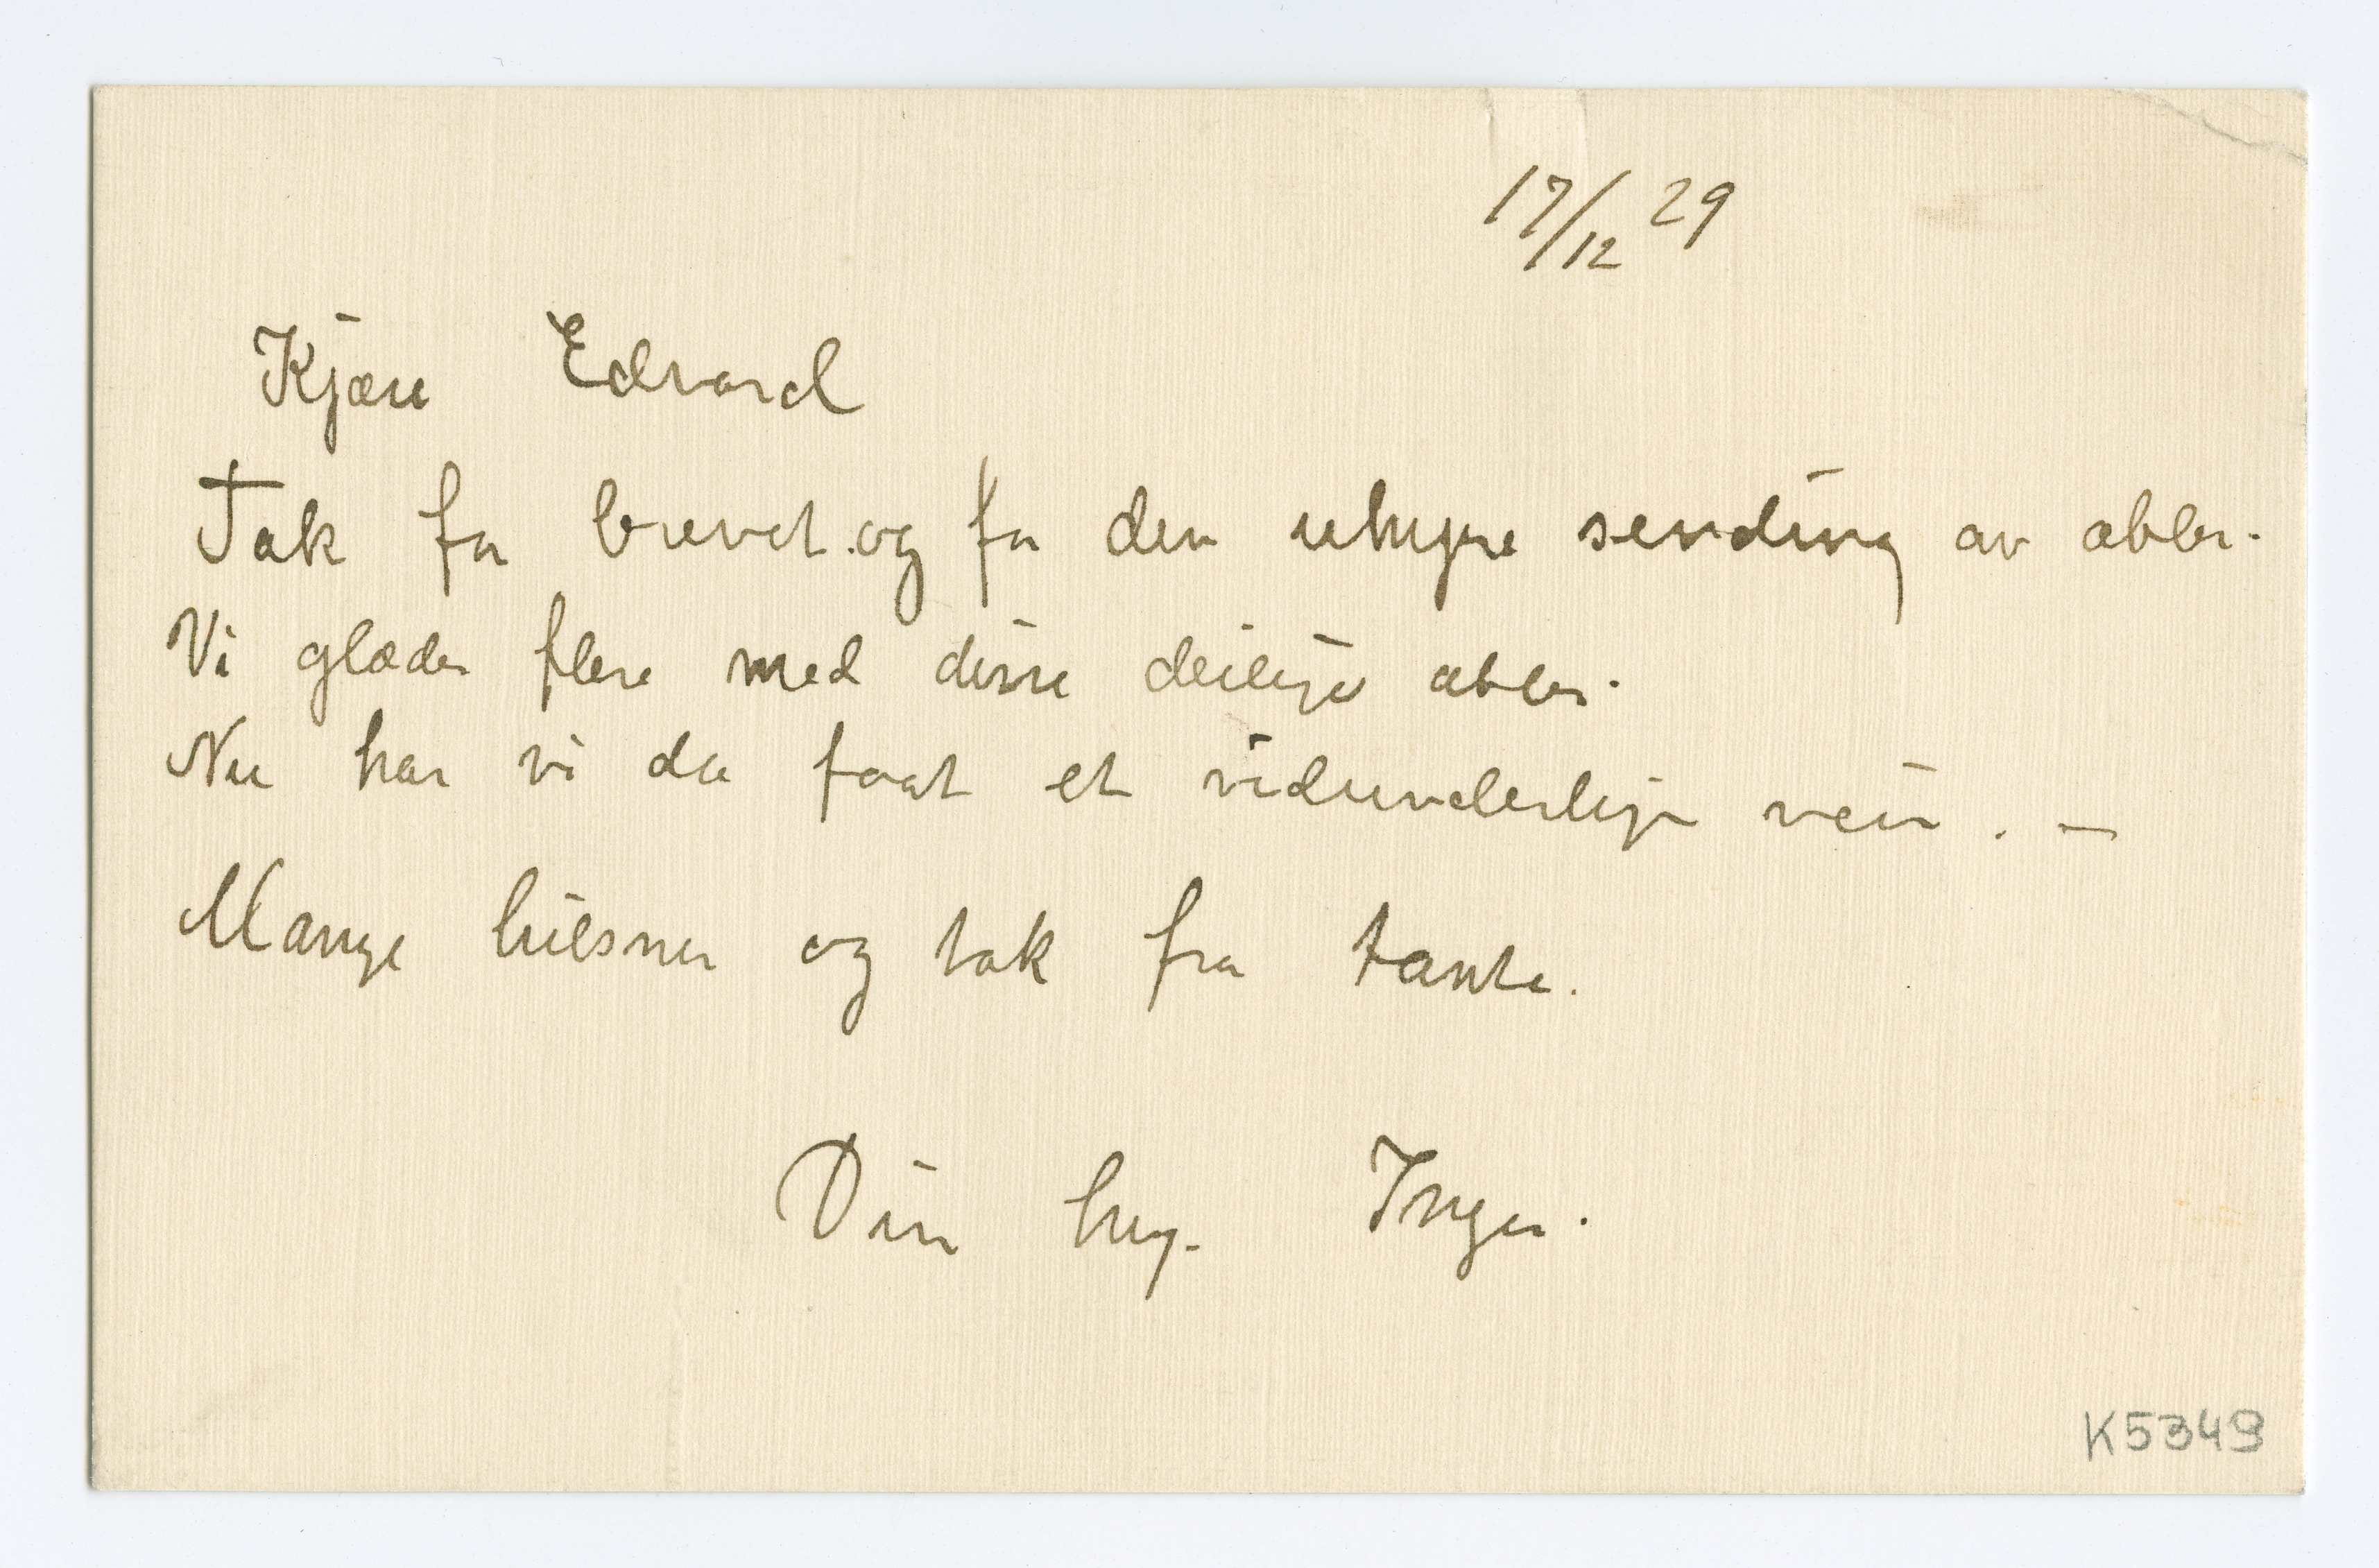 17/12 29
Kjære Edvard
Tak for brevet og for den uhyre sending av æbler.
Vi glæder flere med disse deilige æbler.
Nu har vi da faat et vidunderlig veir. —
Mange hilsner og tak fra tante.
Din hng. Inger.
K5349